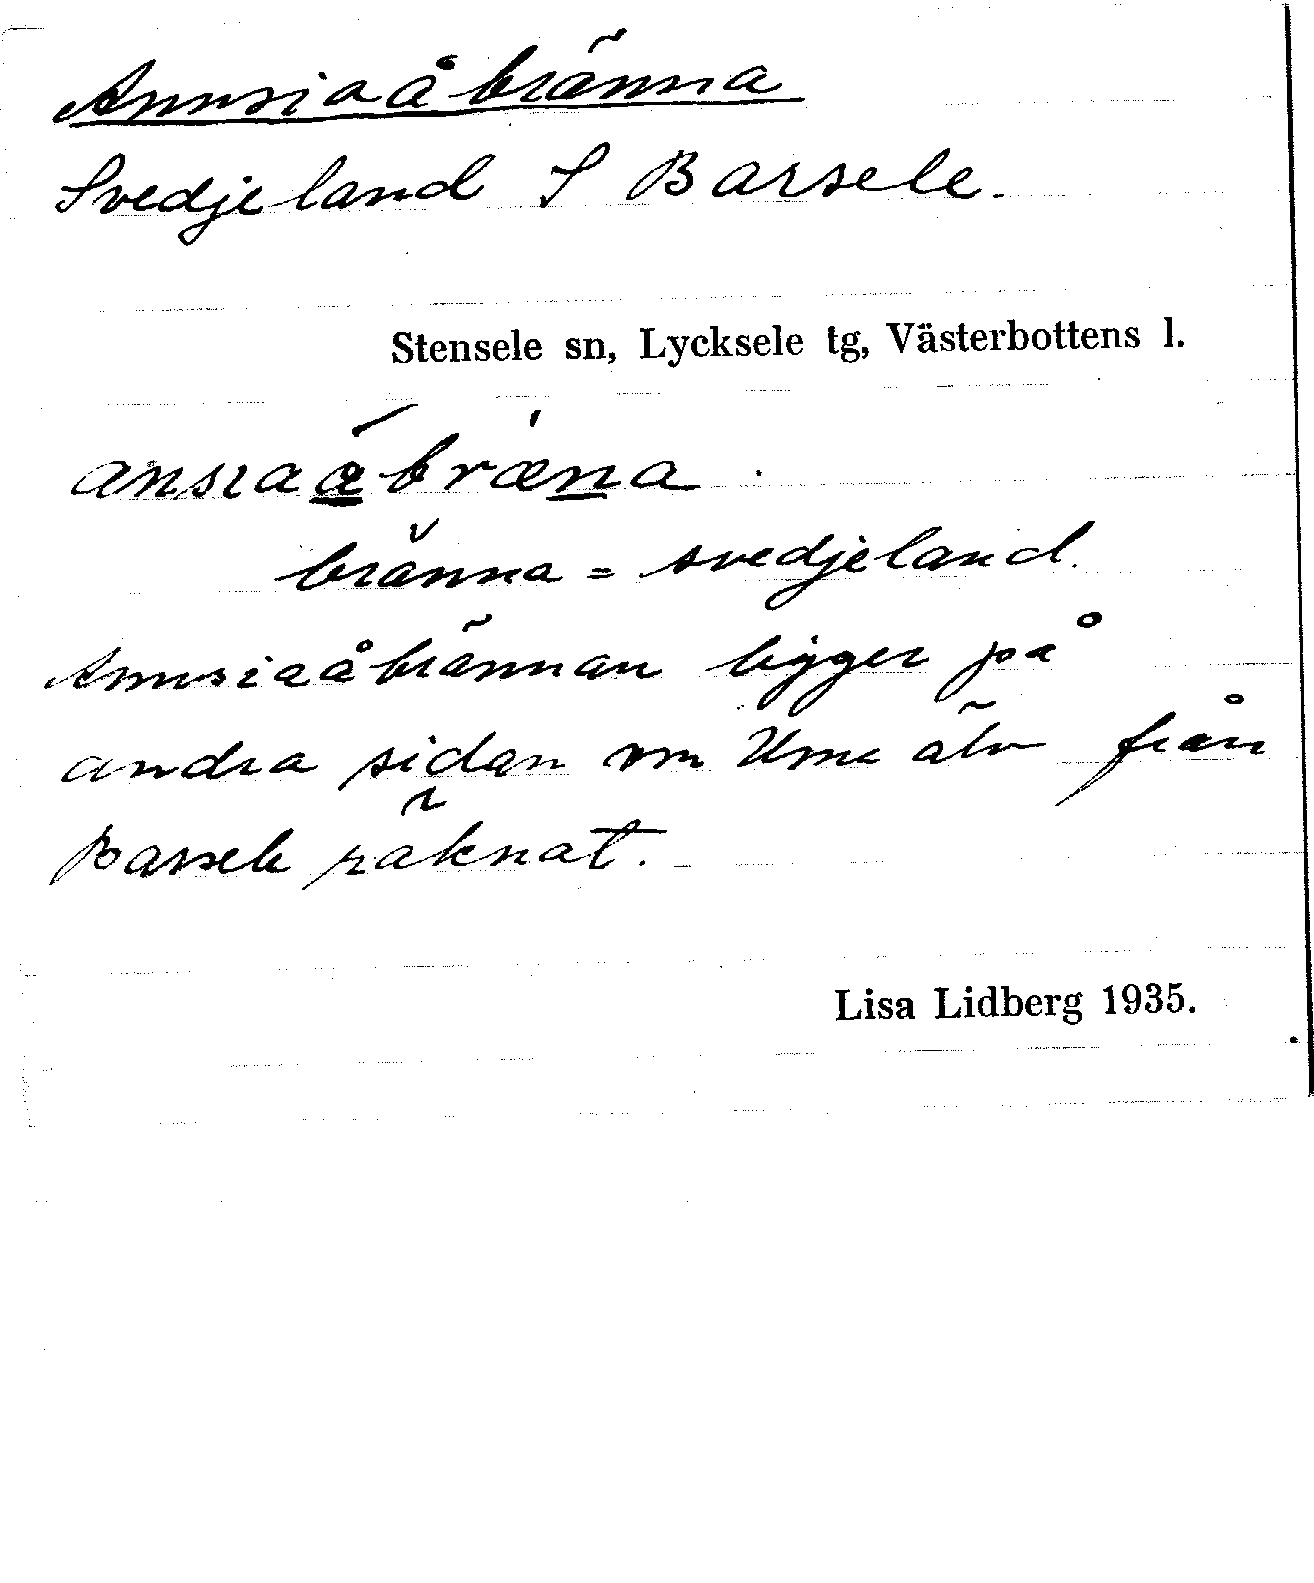 Annsiaåbränna
Svedjeland S Barsele.
Stensele sn, Lycksele tg, Västerbottens l.
ansiaåbræna.
bränna = svedjeland.
Annsiaåbrännan ligger på
andra sidan om Ume älv från
Barsele räknat.
Lisa Lidberg 1935.